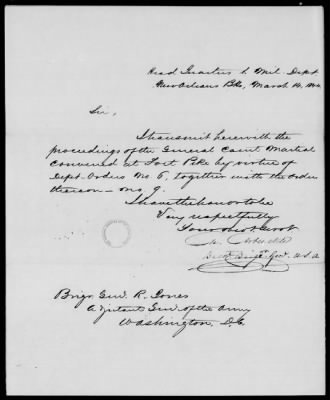 Head Quarters 1. Mil. Dept.
New Orleans Bks, March 14,
Sir,
I transmit herewith the
proceedings of the General Court Martial
convened at Fort Pike by virtue of
Dept. Orders No. 6, together with the Order
thereon — No. 9.
I have the honor to be
Very respectfully
Your obt Servt
M. Arbuckle
Brevt Brigr Genl. U.S.A
Brigr. Genl. R. Jones
Adjutant Genl of the Army
Washington, D.C.